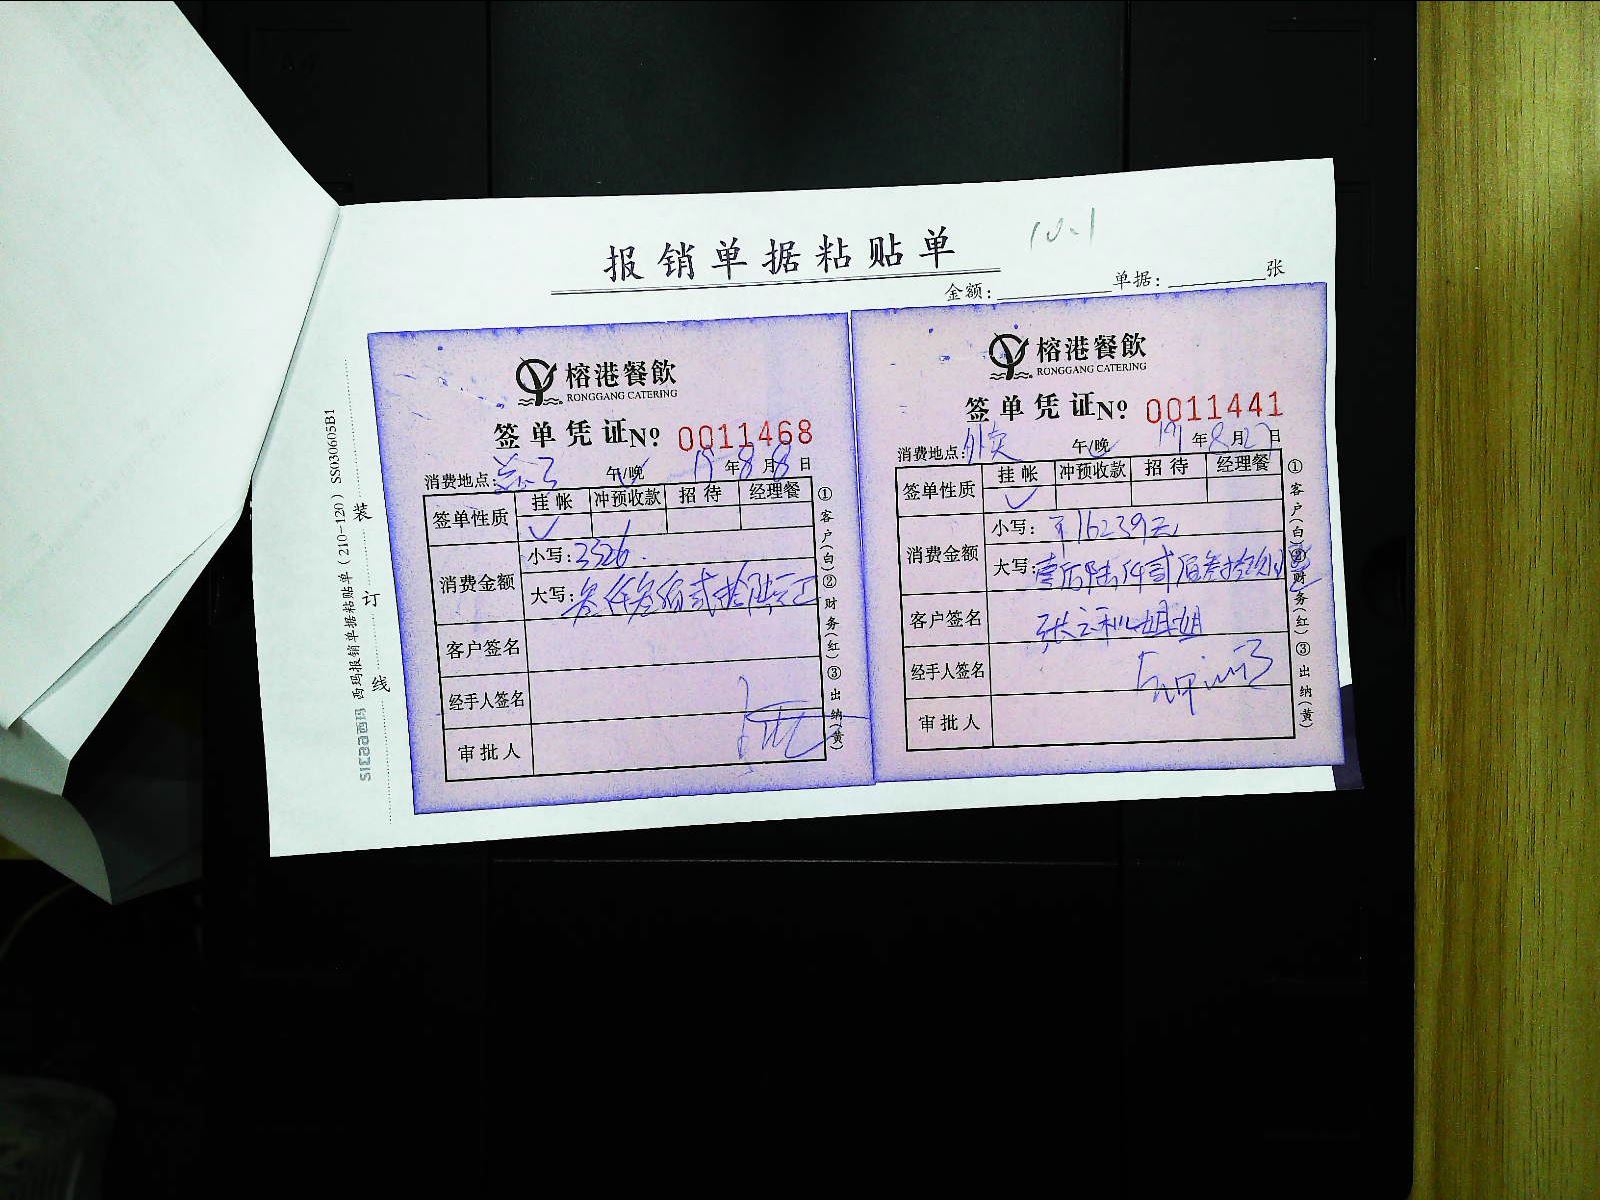 报销单据粘贴单
10.1
金额： 单据： 张
SS030605B1
西玛报销单据粘贴单（210-120）
SIMAA西玛
装
订
线
榕港餐飲
RONGGANG CATERING
签单凭证 Nº 0011468
消费地点： 午/晚 17年8月8日
签单性质 挂帐 冲预收款 招待 经理餐
✓
消费金额 小写：3326.
大写：叁仟叁佰贰拾陆元正
客户签名
经手人签名
审批人
①客户(白)②财务(红)③出纳(黄)
榕港餐飲
RONGGANG CATERING
签单凭证 Nº 0011441
消费地点：外卖 午/晚 17年8月27日
签单性质 挂帐 冲预收款 招待 经理餐
✓
消费金额 小写：¥16239元
大写：壹万陆仟贰佰叁拾玖元
客户签名 张 姐
经手人签名
审批人
①客户(白)②财务(红)③出纳(黄)